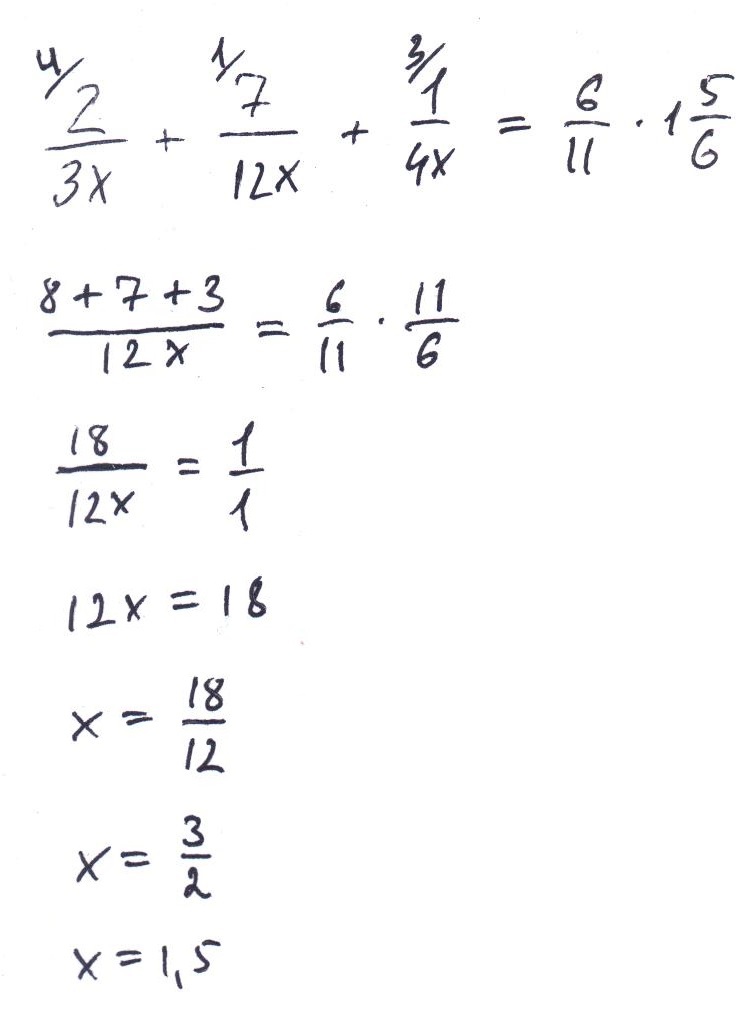 4/ 2/3x + 1/ 7/12x + 3/ 1/4x = 6/11 · 1 5/6
8+7+3/12x = 6/11 · 11/6
18/12x = 1/1
12x = 18
x = 18/12
x = 3/2
x = 1,5